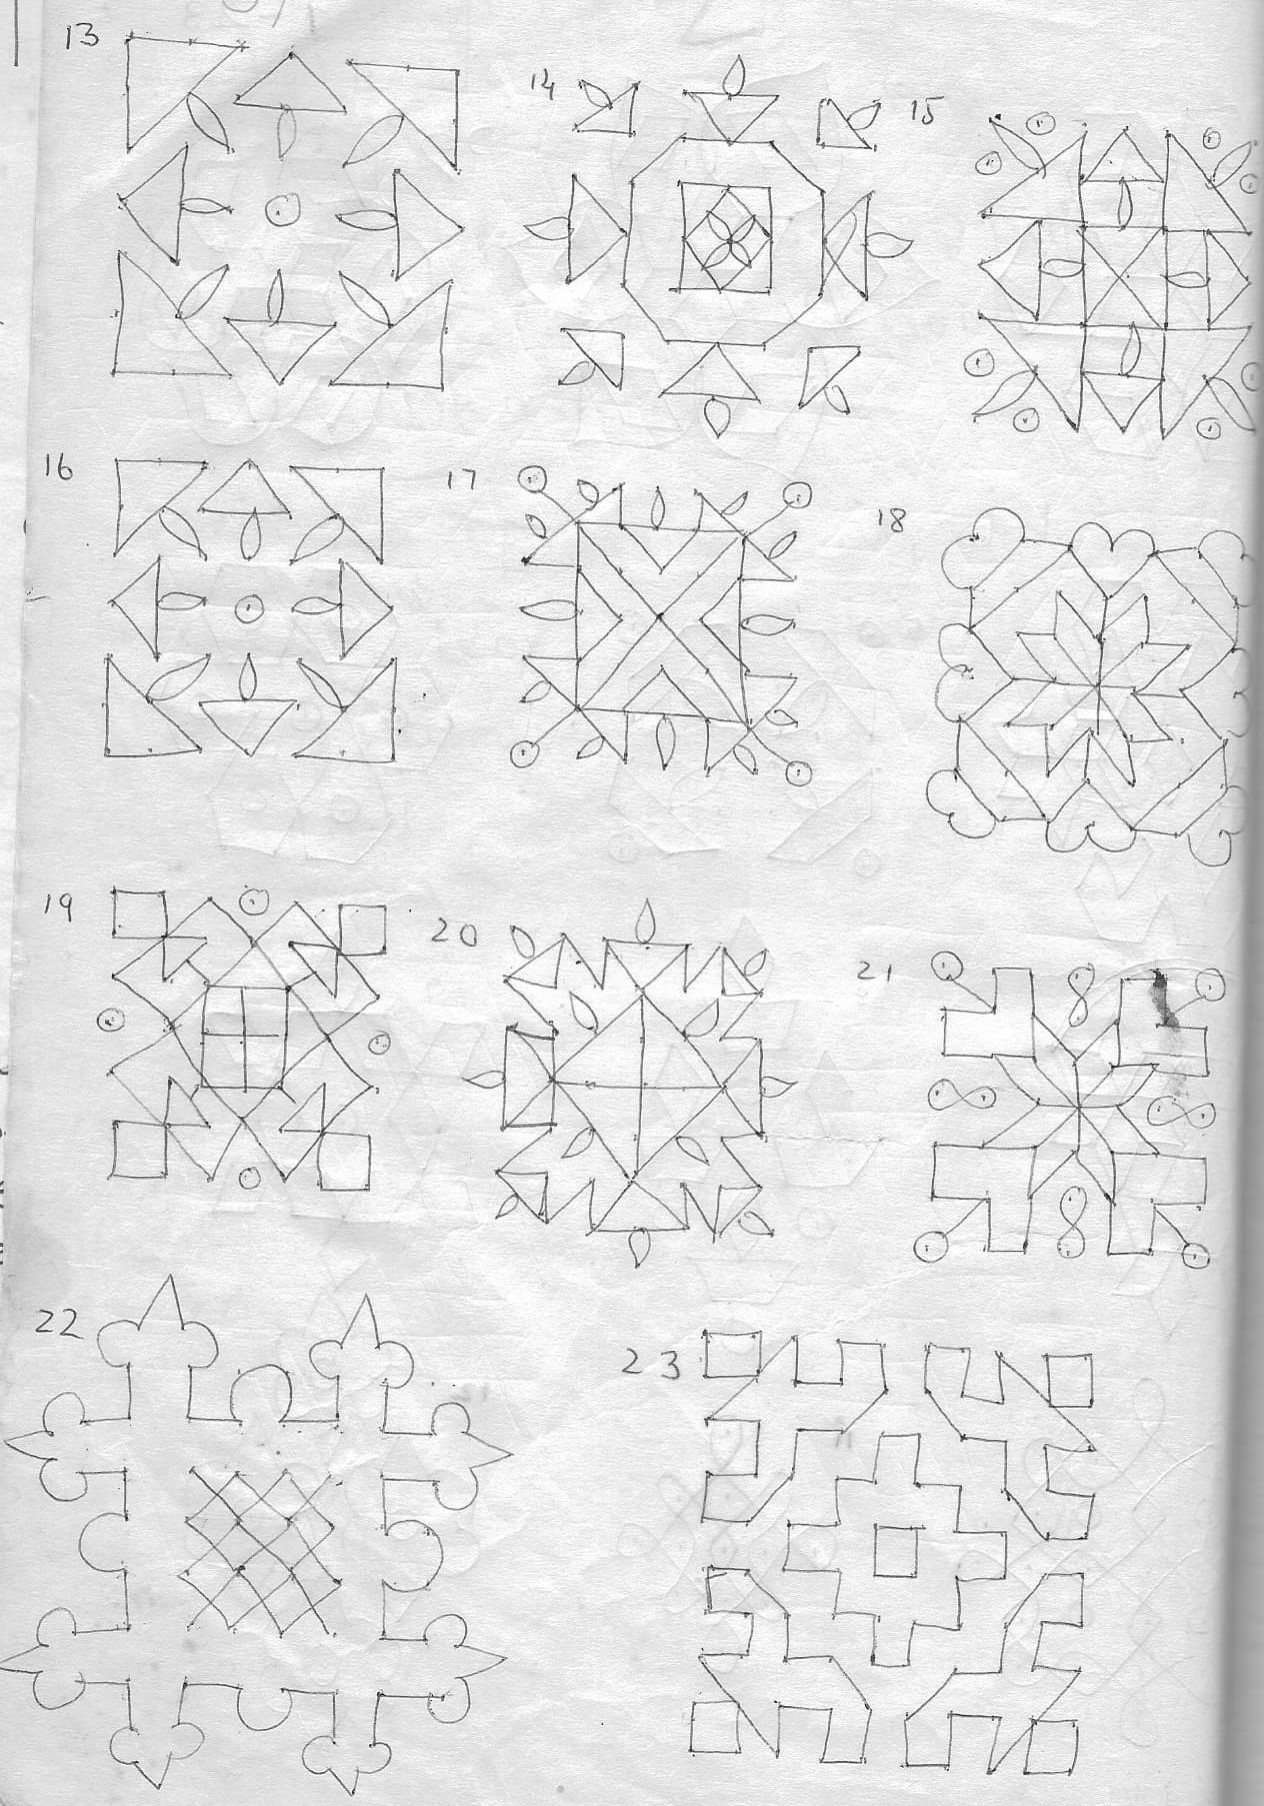 13
14
15
16
17
18
19
20
21
22
23